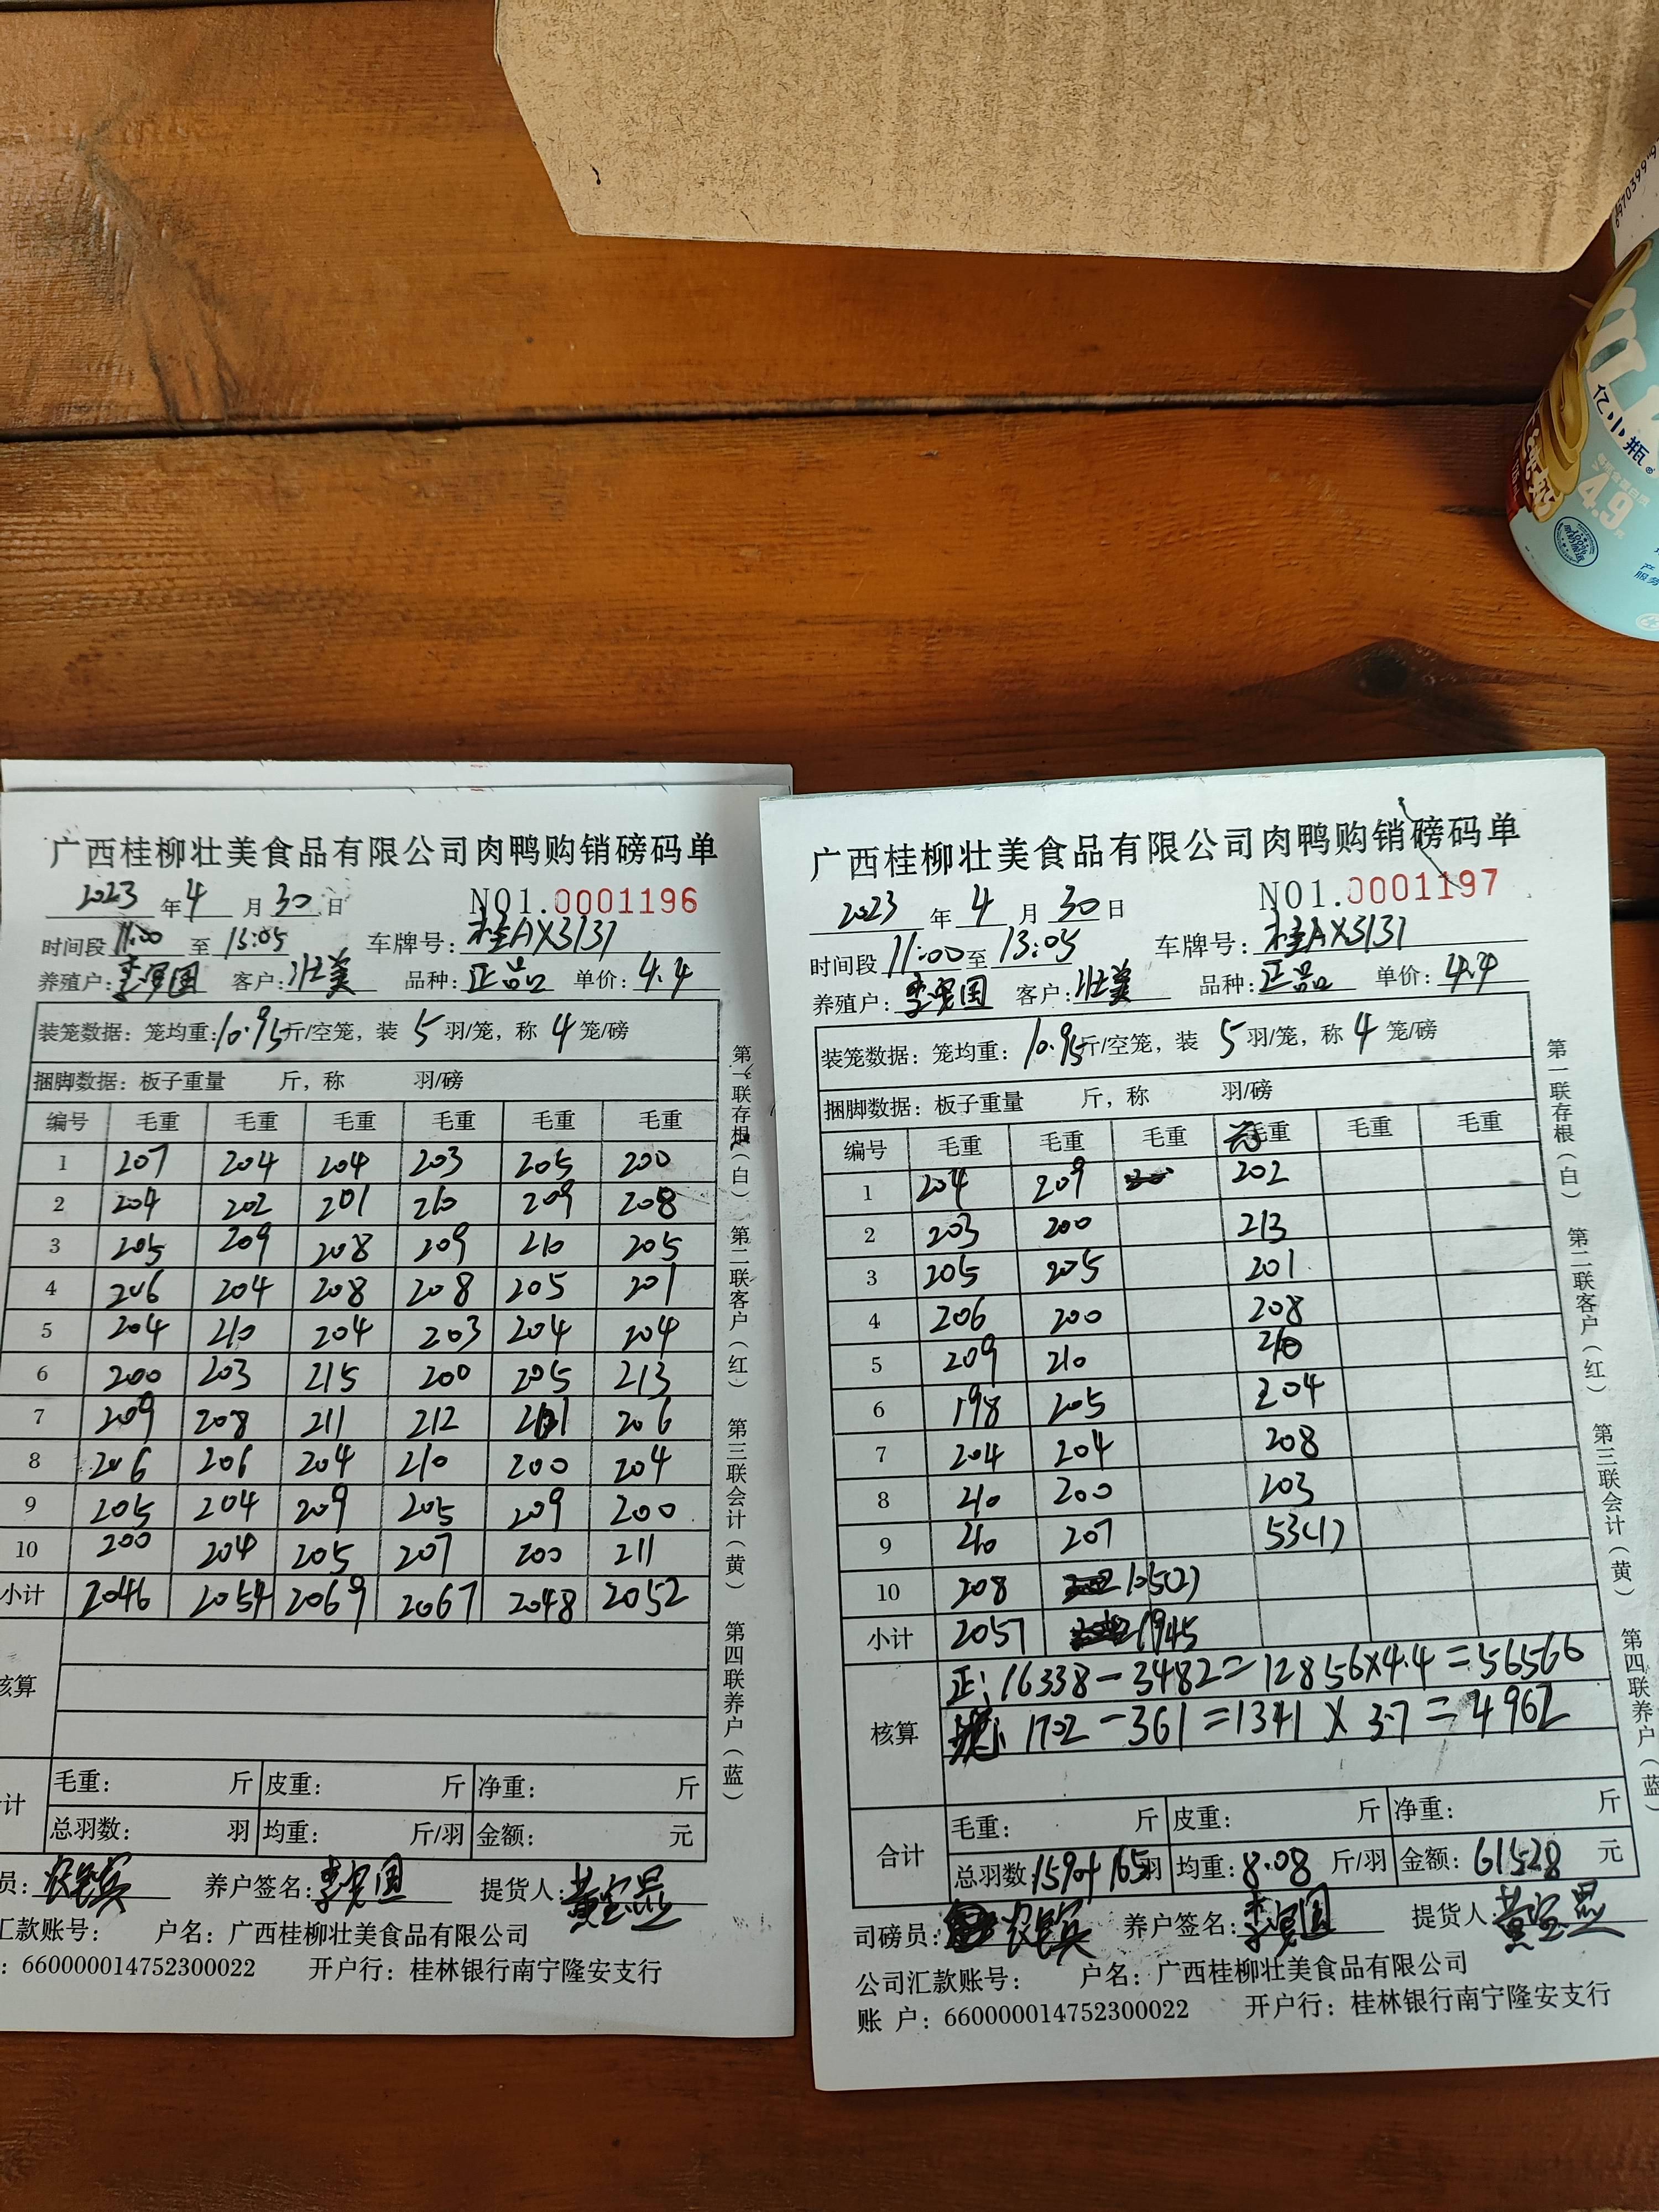 亿小瓶®
4.9
广西桂柳壮美食品有限公司肉鸭购销磅码单
2023 年 4 月 30 日 NO1.0001196
时间段 11:00 至 13:05 车牌号: 桂AX3131
养殖户: 客户: 壮美 品种: 正品 单价: 4.4
装笼数据: 笼均重: 10.95 斤/空笼, 装 5 羽/笼, 称 4 笼/磅
捆脚数据: 板子重量 斤, 称 羽/磅
编号 毛重 毛重 毛重 毛重 毛重 毛重
1 207 204 204 203 205 200
2 204 202 201 210 209 208
3 205 209 208 209 210 205
4 206 204 208 208 205 201
5 204 210 204 203 204 204
6 200 203 215 200 205 213
7 209 208 211 212 201 206
8 206 206 204 210 200 204
9 205 204 209 205 209 200
10 200 204 205 207 200 211
小计 2046 2054 2069 2067 2048 2052
核算
计 毛重: 斤 皮重: 斤 净重: 斤
总羽数: 羽 均重: 斤/羽 金额: 元
员: 养户签名: 提货人:
汇款账号: 户名: 广西桂柳壮美食品有限公司
: 660000014752300022 开户行: 桂林银行南宁隆安支行
第一联存根(白) 第二联客户(红) 第三联会计(黄) 第四联养户(蓝)
广西桂柳壮美食品有限公司肉鸭购销磅码单
2023 年 4 月 30 日 NO1.0001197
时间段 11:00 至 13:05 车牌号: 桂AX3131
养殖户: 客户: 壮美 品种: 正品 单价: 4.4
装笼数据: 笼均重: 10.95 斤/空笼, 装 5 羽/笼, 称 4 笼/磅
捆脚数据: 板子重量 斤, 称 羽/磅
编号 毛重 毛重 毛重 毛重 毛重 毛重
1 204 209 202
2 203 200 213
3 205 205 201
4 206 200 208
5 209 210 210
6 198 205 204
7 204 204 208
8 210 200 203
9 210 207 53(1)
10 208 105(2)
小计 2057 1945
核算 正: 16338-3482=12856×4.4=56566
1702-361=1341×3.7=4962
合计 毛重: 斤 皮重: 斤 净重: 斤
总羽数: 1590+165 羽 均重: 8.08 斤/羽 金额: 61528 元
司磅员: 养户签名: 提货人:
公司汇款账号: 户名: 广西桂柳壮美食品有限公司
账 户: 660000014752300022 开户行: 桂林银行南宁隆安支行
第一联存根(白) 第二联客户(红) 第三联会计(黄) 第四联养户(蓝)